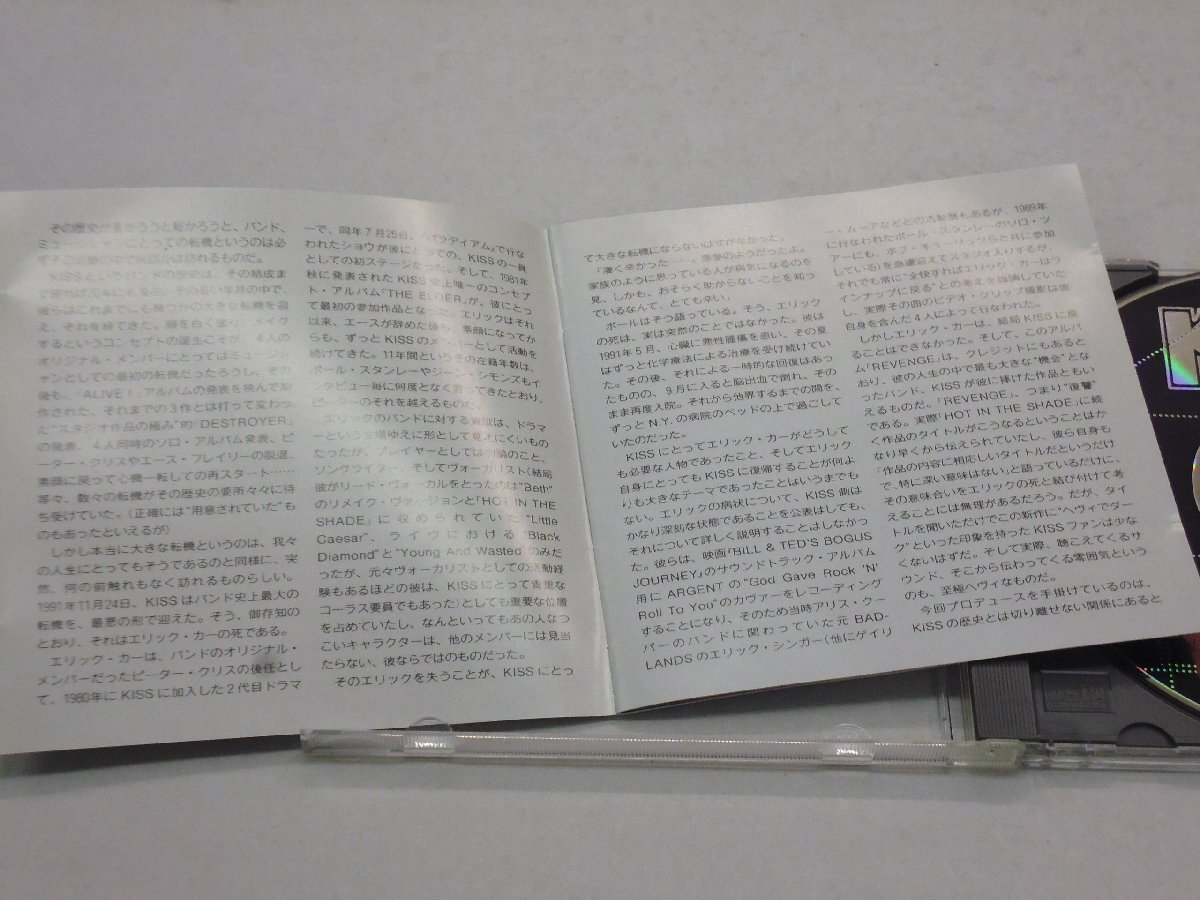 その歴史が長かろうと短かろうと、バンド、
ミュージシャンにとっての転機というのは必
ず
KISSというバンドの歴史は、その結成ま
の中で、
彼らはこれまでにも幾つかの大きな転機を迎
え、それを経てきた。顔を白く塗り、メイク
するというコンセプトの誕生こそが、4人の
オリジナル・メンバーにとってはミュージシ
ャンとしての最初の転機だったろうし、その
後も、「ALIVE!」アルバムの発表を挟んで制
作された、それまでの3作とは打って変わっ
た"スタジオ作品の極み"的「DESTROYER」
の発表、4人同時のソロ・アルバム発表、ピ
ーター・クリスやエース・フレイリーの脱退、
素顔に戻って心機一転しての再スタート……
等々、数々の転機がその歴史の要所々々に待
ち受けていた。(正確には"用意されていた"も
のもあったといえるが)
しかし本当に大きな転機というのは、我々
の人生にとってもそうであるのと同様に、突
然、何の前触れもなく訪れるものらしい。
1991年11月24日、KISSはバンド史上最大の
転機を、最悪の形で迎えた。そう、御存知の
とおり、それはエリック・カーの死である。
エリック・カーは、バンドのオリジナル・
メンバーだったピーター・クリスの後任とし
て、1980年にKISSに加入した2代目ドラマ
ーで、同年7月25日、"パラディアム"で行な
われたショウが彼にとっての、KISSの一員
としての初ステージだった。そして、1981年
秋に発表されたKISS史上唯一のコンセプ
ト・アルバム「THE ELDER」が、彼にとっ
て最初の参加作品となった。エリックはそれ
以来、エースが辞めた後も、素顔になってか
らも、ずっとKISSのメンバーとして活動を
続けてきた。11年間というその在籍年数は、
ポール・スタンレーやジーン・シモンズもイ
ンタビュー毎に何度となく言ってきたとおり、
ピーターのそれを越えるものだ。
エリックのバンドに対する貢献は、ドラマ
ーという立場ゆえに形として見えにくいもの
だったが、プレイヤーとしては勿論のこと、
ソングライター、そしてヴォーカリスト(結局
彼がリード・ヴォーカルをとったのは"Beth"
のリメイク・ヴァージョンと「HOT IN THE
SHADE」に収められていた"Little
Caesar"、ライヴにおける"Black
Diamond"と"Young And Wasted"のみだ
ったが、元々ヴォーカリストとしての活動経
験もあるほどの彼は、KISSにとって貴重な
コーラス要員でもあった)としても重要な位置
を占めていたし、なんといってもあの人なつ
こいキャラクターは、他のメンバーには見当
たらない、彼ならではのものだった。
そのエリックを失うことが、KISSにとっ
て大きな転機にならないはずがなかった。
「凄く辛かった……。悪夢のようだったよ。
家族のように思っている人が病気になるのを
見、しかも、おそらく助からないことを知っ
ているなんて、とても辛い」
ポールはそう語っている。そう、エリック
の死は、実は突然のことではなかった。彼は
1991年5月、心臓に悪性腫瘍を患い、その夏
はずっと化学療法による治療を受け続けてい
た。その後、それによる一時的な回復はあっ
たものの、9月に入ると脳出血で倒れ、その
まま再度入院。それから他界するまでの間を、
ずっとN.Y.の病院のベッドの上で過ごして
いたのだった。
KISSにとってエリック・カーがどうして
も必要な人物であったこと、そしてエリック
自身にとってもKISSに復帰することが何よ
りも大きなテーマであったことはいうまでも
ない。エリックの病状について、KISS側は
かなり深刻な状態であることを公表はしても、
それについて詳しく説明することはしなかっ
た。彼らは、映画「BILL & TED'S BOGUS
JOURNEY」のサウンドトラック・アルバム
用にARGENTの"God Gave Rock 'N'
Roll To You"のカヴァーをレコーディング
することになり、そのため当時アリス・クー
パーのバンドに関わっていた元BAD-
LANDSのエリック・シンガー(他にゲイリ
ー・ムーアなどとの活動歴もあるが、1989年
に行なわれたポール・スタンレーのソロ・ツ
アーにも、ボブ・キューリックらと共に参加
している)を急遽迎えてスタジオ入りするが、
それでも常に"全快すればエリック・カーはラ
インナップに戻る"との考えを強調していた
し、実際その曲のビデオ・クリップ撮影は彼
自身を含んだ4人によって行なわれた。
しかしエリック・カーは、結局KISSに戻
ることはできなかった。そして、このアルバ
ム「REVENGE」は、クレジットにもあると
おり、彼の人生の中で最も大きな"機会"とな
ったバンド、KISSが彼に捧げた作品ともい
えるものだ。「REVENGE」、つまり"復讐"
である。実際「HOT IN THE SHADE」に続
く作品のタイトルがこうなるということはか
なり早くから伝えられていたし、彼ら自身も
「作品の内容に相応しいタイトルだというだけ
で、特に深い意味はない」と語っているだけに、
その意味合いをエリックの死と結び付けて考
えることには無理があるだろう。だが、タイ
トルを聞いただけでこの新作に"ヘヴィでダー
ク"といった印象を持ったKISSファンは少な
くないはずだ。そして実際、聴こえてくるサ
ウンド、そこから伝わってくる雰囲気という
のも、至極ヘヴィなものだ。
今回プロデュースを手掛けているのは、
KISSの歴史とは切り離せない関係にあると